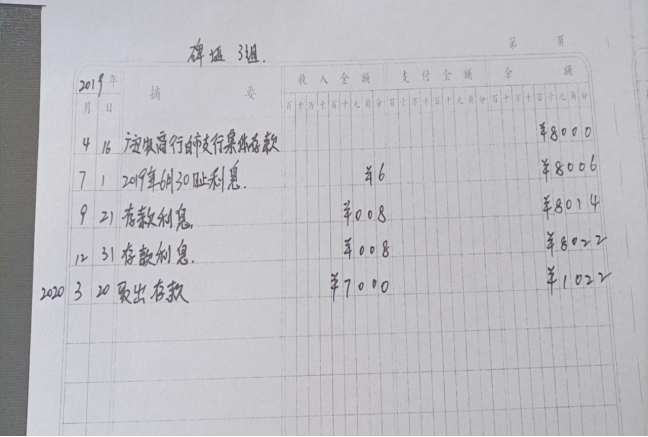 碑垭 3组.
第 页
2019年 摘 要 收入金额 支付金额 余 额
月 日 百十万千百十元角分 百十万千百十元角分 百十万千百十元角分
4 16 存款 ¥8000
7 1 2019年6月30日止利息. ¥6 ¥8006
9 21 存款利息. ¥008 ¥8014
12 31 存款利息. ¥008 ¥8022
2020 3 20 取出存款 ¥7000 ¥1022